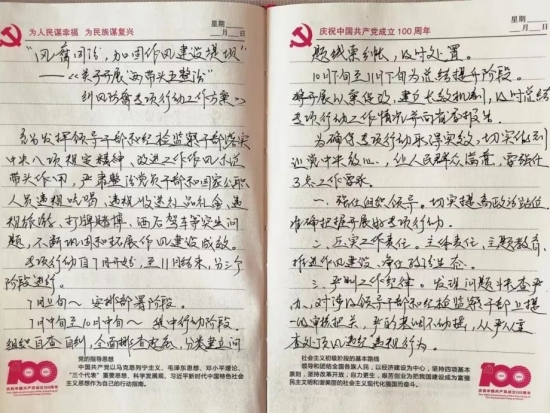 为人民谋幸福 为民族谋复兴
星期
月 日
"风腐同治,加固作风建设堤坝"
——《关于开展"两带头五整治"
纠风防腐专项行动工作方案》
充分发挥领导干部和纪检监察干部落实
中央八项规定精神,改进工作作风示范
带头作用,严肃整治党员干部和国家公职
人员违规吃喝、违规收送礼品礼金、违
规旅游、打牌赌博、酒后驾车等突出问
题,不断巩固和拓展作风建设成效。
专项行动自7月开始,至11月结束,分三个
阶段进行。
7月上旬~ 安排部署阶段。
7月中旬至10月中旬~ 集中行动阶段。
组织自查自纠,全面排查起底,分类建立问
党的指导思想
中国共产党以马克思列宁主义、毛泽东思想、邓小平理论、
"三个代表"重要思想、科学发展观、习近平新时代中国特色社会
主义思想作为自己的行动指南。
100
庆祝中国共产党成立100周年
星期
月 日
题线索台账,及时处置。
10月下旬至11月下旬为总结提升阶段。
将开展以案促改,建立长效机制,及时总结
专项行动工作情况并向省委报告。
为确保专项行动取得实效,切实做到
让党中央放心、让人民群众满意,需强化
3点工作要求。
一、强化组织领导。切实提高政治站位
准确把握开展好专项行动。
二、压实工作责任。主体责任,主题教育
推进作风建设、净化政治生态。
三、严明工作纪律。发现问题快查严
办,对涉及领导干部和纪检监察干部
一律
严的基调不动摇,从严从重
查处顶风违纪违规行为。
社会主义初级阶段的基本路线
领导和团结全国各族人民,以经济建设为中心,坚持四项基本
原则,坚持改革开放,自力更生,艰苦创业,为把我国建设成为富强
民主文明和谐美丽的社会主义现代化强国而奋斗。
100